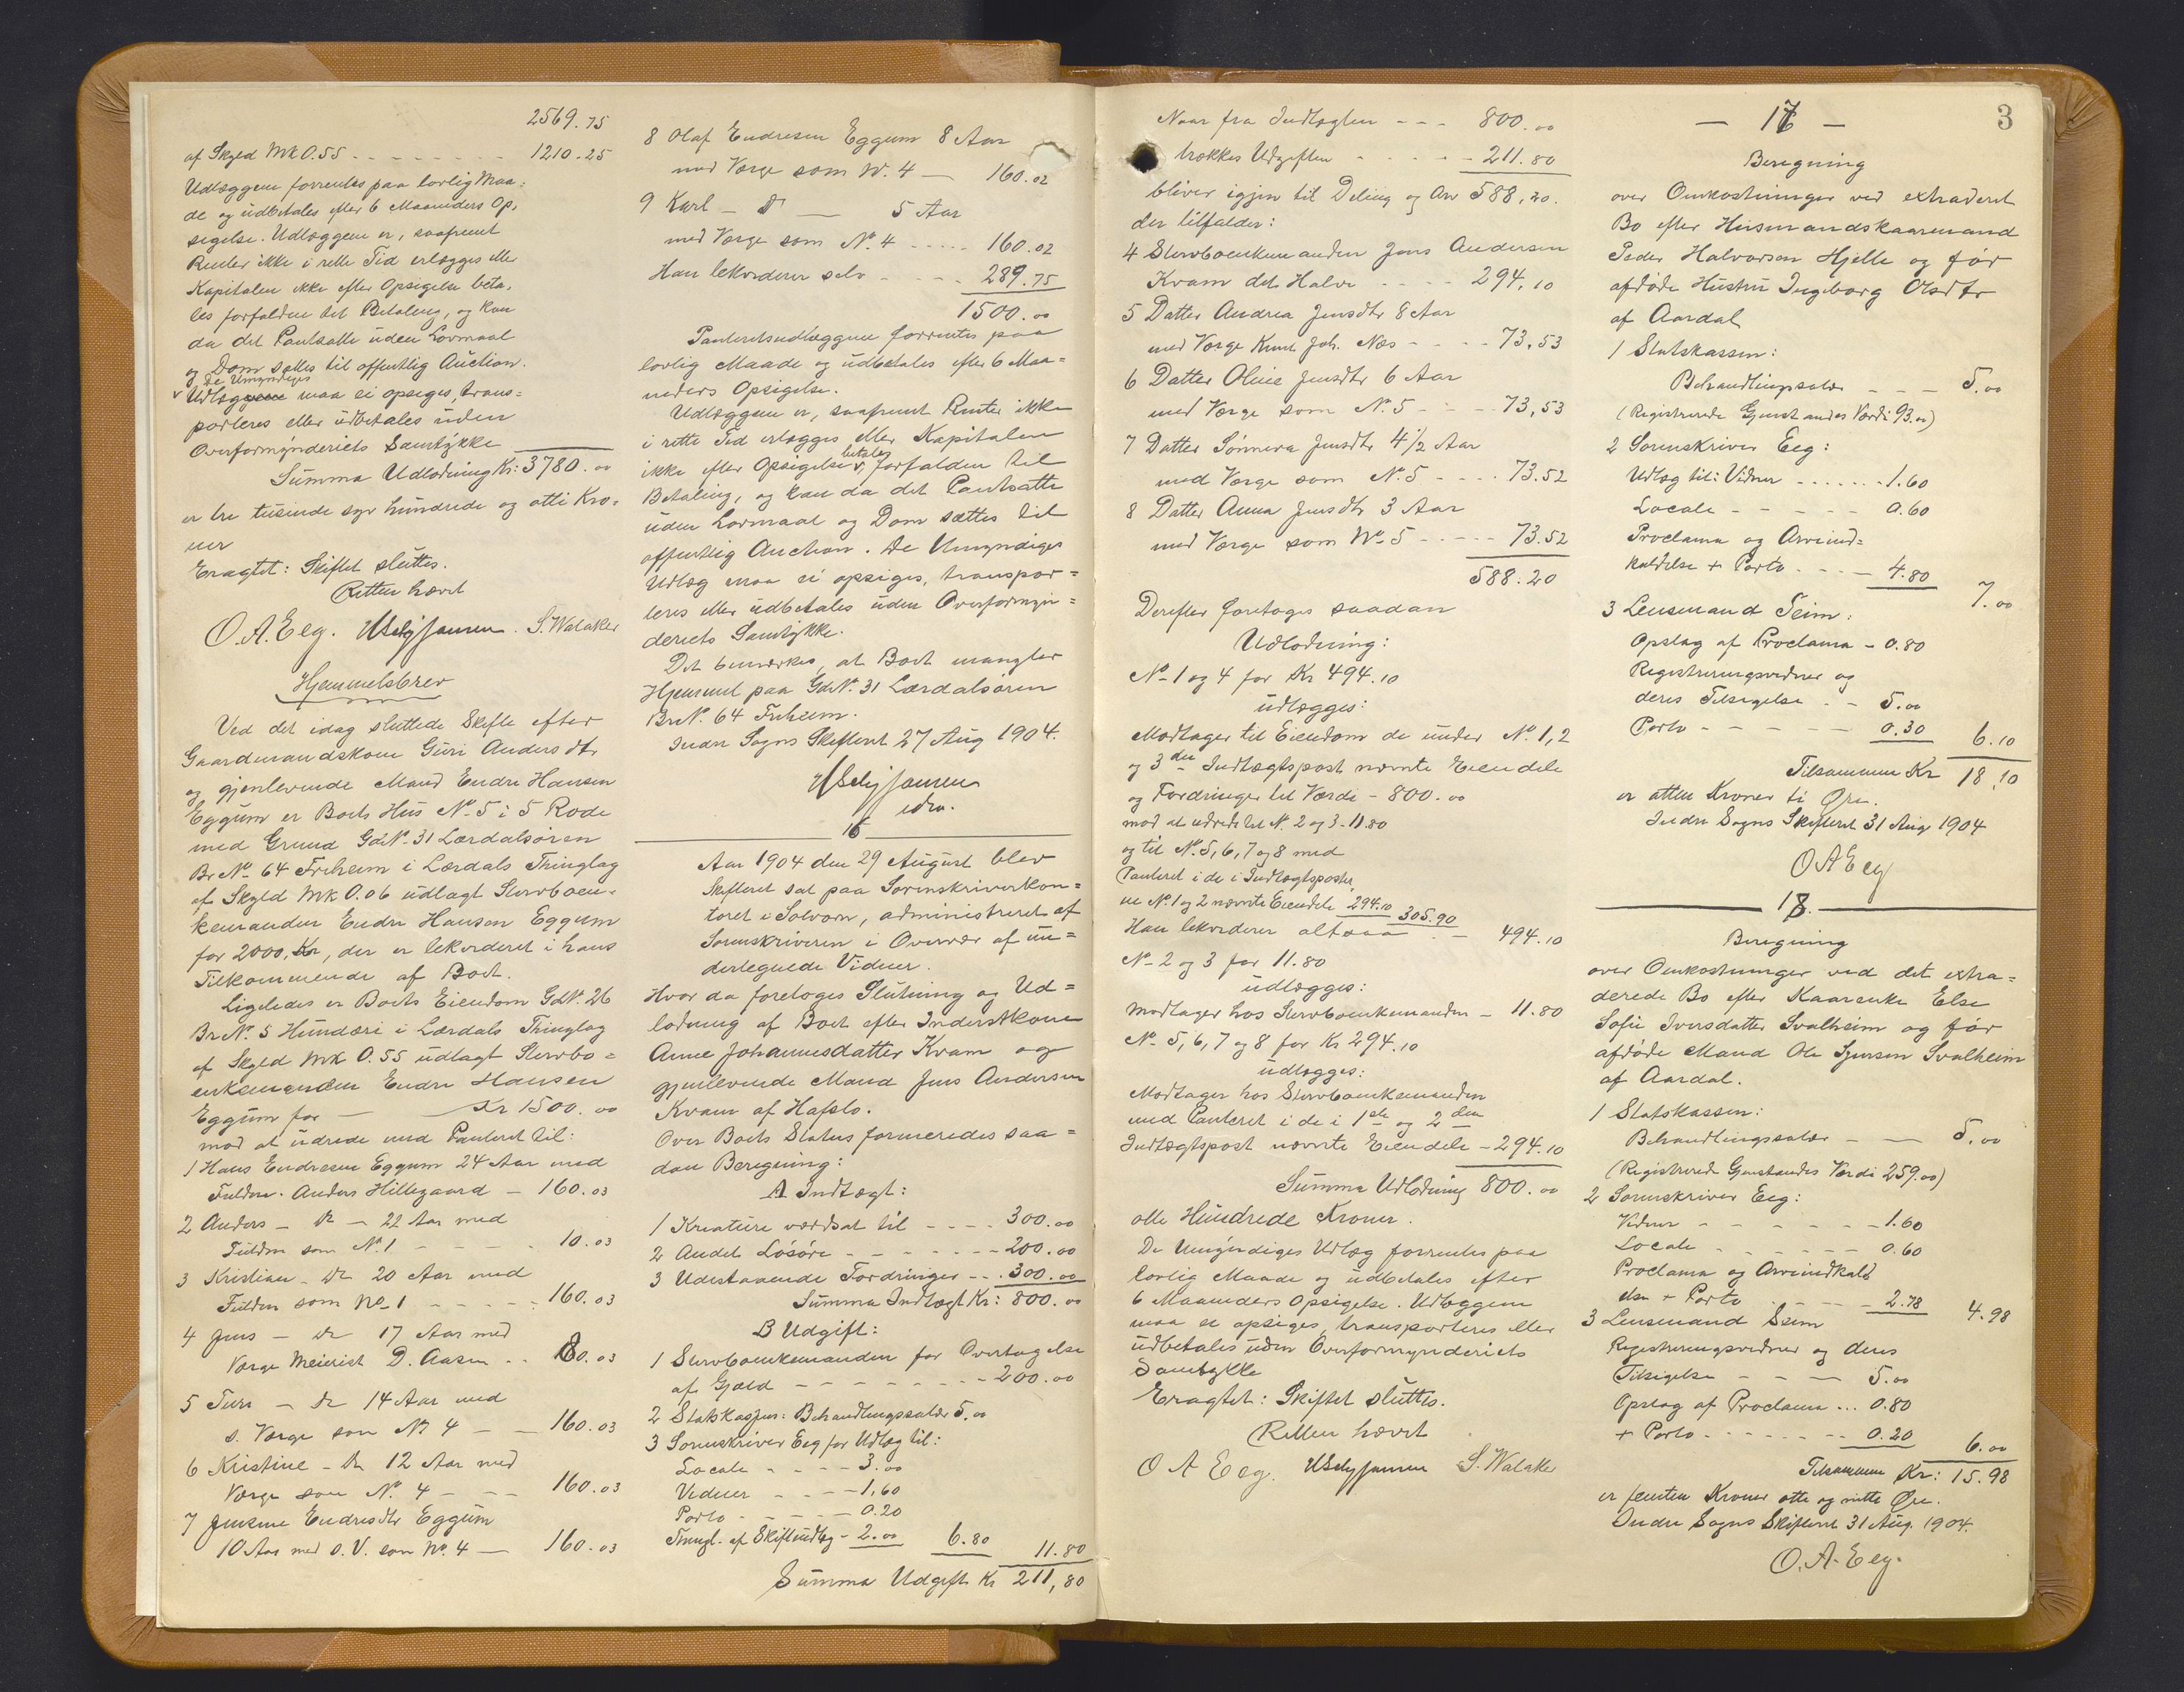 2569.75
af Skyld Mk 0.55 - - - - - - - 1210.25
Udlæggene forrentes paa lovlig Maa=
de og udbetales efter 6 Maaneders Op=
sigelse. Udlæggene er, saafremt
Renter ikke i rette Tid erlægges eller
Kapitalen ikke efter Opsigelse beta=
les forfaldne til Betaling, og kan
da det Pantsatte uden Lovmaal
og Dom sættes til offentlig Auction.
de Umyndiges
Udlæggene maa ei opsiges, trans=
porteres eller udbetales uden
Overformynderiets Samtykke
Summa Udlodning Kr: 3780.00
er tre tusinde syv hundrede og otti Kro=
ner
Eragtet: Skiftet sluttes.
Retten hævet
O. A. Eeg. S. Walaker
Hjemmelsbrev
Ved det idag sluttede Skifte efter
Gaardmandskone Guri Andersdtr
og gjenlevende Mand Endre Hansen
Eggum er Boets Hus No 5 i 5 Rode
med Grund GdN. 31 Lærdalsøren
BrNo 64 Friheim i Lærdals Thinglag
af Skyld Mk 0.06 udlagt Stervboen=
kemanden Endre Hansen Eggum
for 2000, Kr, der er lekvideret i hans
Tilkommende af Boet.
Ligeledes er Boets Eiendom GdN. 26
BrN. 5 Hundæri i Lærdals Thinglag
af Skyld Mk 0.55 udlagt Stervbo=
enkemanden Endre Hansen
Eggum for — Kr 1500.00
mod at udrede med Panteret til:
1 Hans Endresen Eggum 24 Aar med
Tilsyn. Anders Hillegaard — 160.03
2 Anders — Do — 22 Aar med
som No 1 - - - - 10.03
3 Kristian — Do 20 Aar med
som No 1 - - - - 160.03
4 Jens — Do 17 Aar med
Værge Meierist D. Aasen . . 80.03
5 Turi — Do 14 Aar med
s. Værge som No 4 — — 160.03
6 Kristine — Do 12 Aar med
Værge som No 4 - - - 160.03
7 Jensine Endresdtr Eggum
10 Aar med s. V. som No. 4 — 160.03
8 Olaf Endresen Eggum 8 Aar
med Værge som No. 4 — 160.02
9 Karl — Do — 5 Aar
med Værge som No. 4 - - - - - 160.02
Han lekviderer selv - - - - 289.75
1500.00
Panteretsudlæggene forrentes paa
lovlig Maade og udbetales efter 6 Maa=
neders Opsigelse.
Udlæggene er, saafremt Renter ikke
i rette Tid erlægges eller Kapitalen
betales
ikke efter Opsigelse v, forfalden til
Betaling, og kan da det Pantsatte
uden Lovmaal og Dom sættes til
offentlig Auction. De Umyndiges
Udlæg maa ei opsiges, transpor=
teres eller udbetales uden Overformyn=
deriets Samtykke.
Det bemærkes, at Boet mangler
Hjemmel paa GdN. 31 Lærdalsøren
BrN. 64 Friheim.
Indre Sogns Skifteret 27 Aug 1904.
16
Aar 1904 den 29 August blev
Skifteret sat paa Sorenskriverkon=
toret i Solvorn, administreret af
Sorenskriveren i Overvær af un=
dertegnede Vidner.
Hvor da foretoges Slutning og Ud=
lodning af Boet efter Inderstkone
Anne Johannesdatter Kvam og
gjenlevende Mand Jens Andersen
Kvam af Hafslo.
Over Boets Status formeredes saa=
dan Beregning:
A Indtægt:
1 Kreature værdsat til - - - - 300.00
2 Andet Løsøre - - - - - - - 200.00
3 Udestaaende Fordringer - - . 300.00
Summa Indtægt Kr: 800.00
B Udgift:
1 Stervboenkemanden for Overtagelse
af Gjæld - - - - - - - - 200.00
2 Statskassen: Behandlingssalær 5.00
3 Sorenskriver Eeg for Udlæg til:
Locale - - - - 3.00
Vidner - - - - 1,60
Porto - - - - - 0.20
Thingl. af Skifteudlæg - 2.00 6.80 11.80
Summa Udgift Kr 211,80
Naar fra Indtægten - - - 800.00
trækkes Udgiften - - - - - 211.80
bliver igjen til Deling og Arv 588,20.
der tilfalder:
4 Stervboenkemanden Jens Andersen
Kvam det Halve - - - - 294,10
5 Datter Andrea Jensdtr 8 Aar
med Værge Knut Joh. Næs - - - - 73,53
6 Datter Oline Jensdtr 6 Aar
med Værge som No. 5 - - - 73,53
7 Datter Sønneva Jensdtr 4 1/2 Aar
med Værge som No. 5 - - - - 73.52
8 Datter Anna Jensdtr 3 Aar
med Værge som No 5 - - - - - 73.52
588.20
Derefter foretoges saadan
Udlodning:
No 1 og 4 for Kr 494.10
udlægges:
Modtager til Eiendom de under No. 1, 2
og 3die Indtægtspost nævnte Eiendele
og Fordringer til Værdi - 800.00
mod at udrede til No. 2 og 3 - 11.80
og til No. 5, 6, 7 og 8 med
Panteret i de i Indtægtsposter
ne No. 1 og 2 nævnte Eiendele 294.10 305.90
Han lekviderer altsaa - 494.10
No 2 og 3 for 11.80
udlægges:
Modtager hos Stervboenkemanden — 11.80
No 5, 6, 7 og 8 for Kr 294.10
udlægges:
Modtager hos Stervboenkemanden
med Panteret i de i 1ste og 2den
Indtægtspost nævnte Eiendele - 294.10
Summa Udlodning 800.00
otte Hundrede Kroner.
De Umyndiges Udlæg forrentes paa
lovlig Maade og udbetales efter
6 Maaneders Opsigelse. Udlæggene
maa ei opsiges, transporteres eller
udbetales uden Overformynderiets
Samtykke
Eragtet: Skiftet sluttes.
Retten hævet
O A Eeg. S. Walaker
3
— 17 —
Beregning
over Omkostninger ved extraderet
Bo efter Husmandskaarmand
Peder Halvorsen Hjelle og før
afdøde Hustru Ingeborg Olsdtr
af Aardal
1 Statskassen:
Behandlingssalær - - - 5.00
(Registrerede Gjenstandes Værdi 93.00)
2 Sorenskriver Eeg:
Udlæg til: Vidner - - - - - - - 1.60
Locale - - - - - 0.60
Proclama og Arveind=
kaldelse + Porto - - - - 4.80 7.00
3 Lensmand Seim:
Opslag af Proclama - 0.80
Registreringsvidner og
deres Tilsigelse - - 5.00
Porto - - - - - 0.30 6.10
Tilsammen Kr 18,10
er atten Kroner ti Øre.
Indre Sogns Skifteret 31 Aug 1904
O A Eeg
18.
Beregning
over Omkostninger ved det extra=
derede Bo efter Kaarenke Else
Sofie Iversdatter Svalheim og før
afdøde Mand Ole Sjursen Svalheim
af Aardal.
1 Statskassen:
Behandlingssalær — — 5.00
(Registrerede Gjenstandes Værdi 259.00)
2 Sorenskriver Eeg:
Vidner - - - - - - - 1.60
Locale - - - - - - 0.60
Proclama og Arveindkald
else + Porto - - - - 2.78 4.98
3 Lensmand Seim
Registreringsvidner og deres
Tilsigelse - - - — 5.00
Opslag af Proclama ... 0.80
+ Porto - - - - - - - 0.20 6.00
Tilsammen Kr: 15.98
er femten Kroner otte og nitti Øre.
Indre Sogns Skifteret 31 Aug. 1904.
O. A. Eeg.